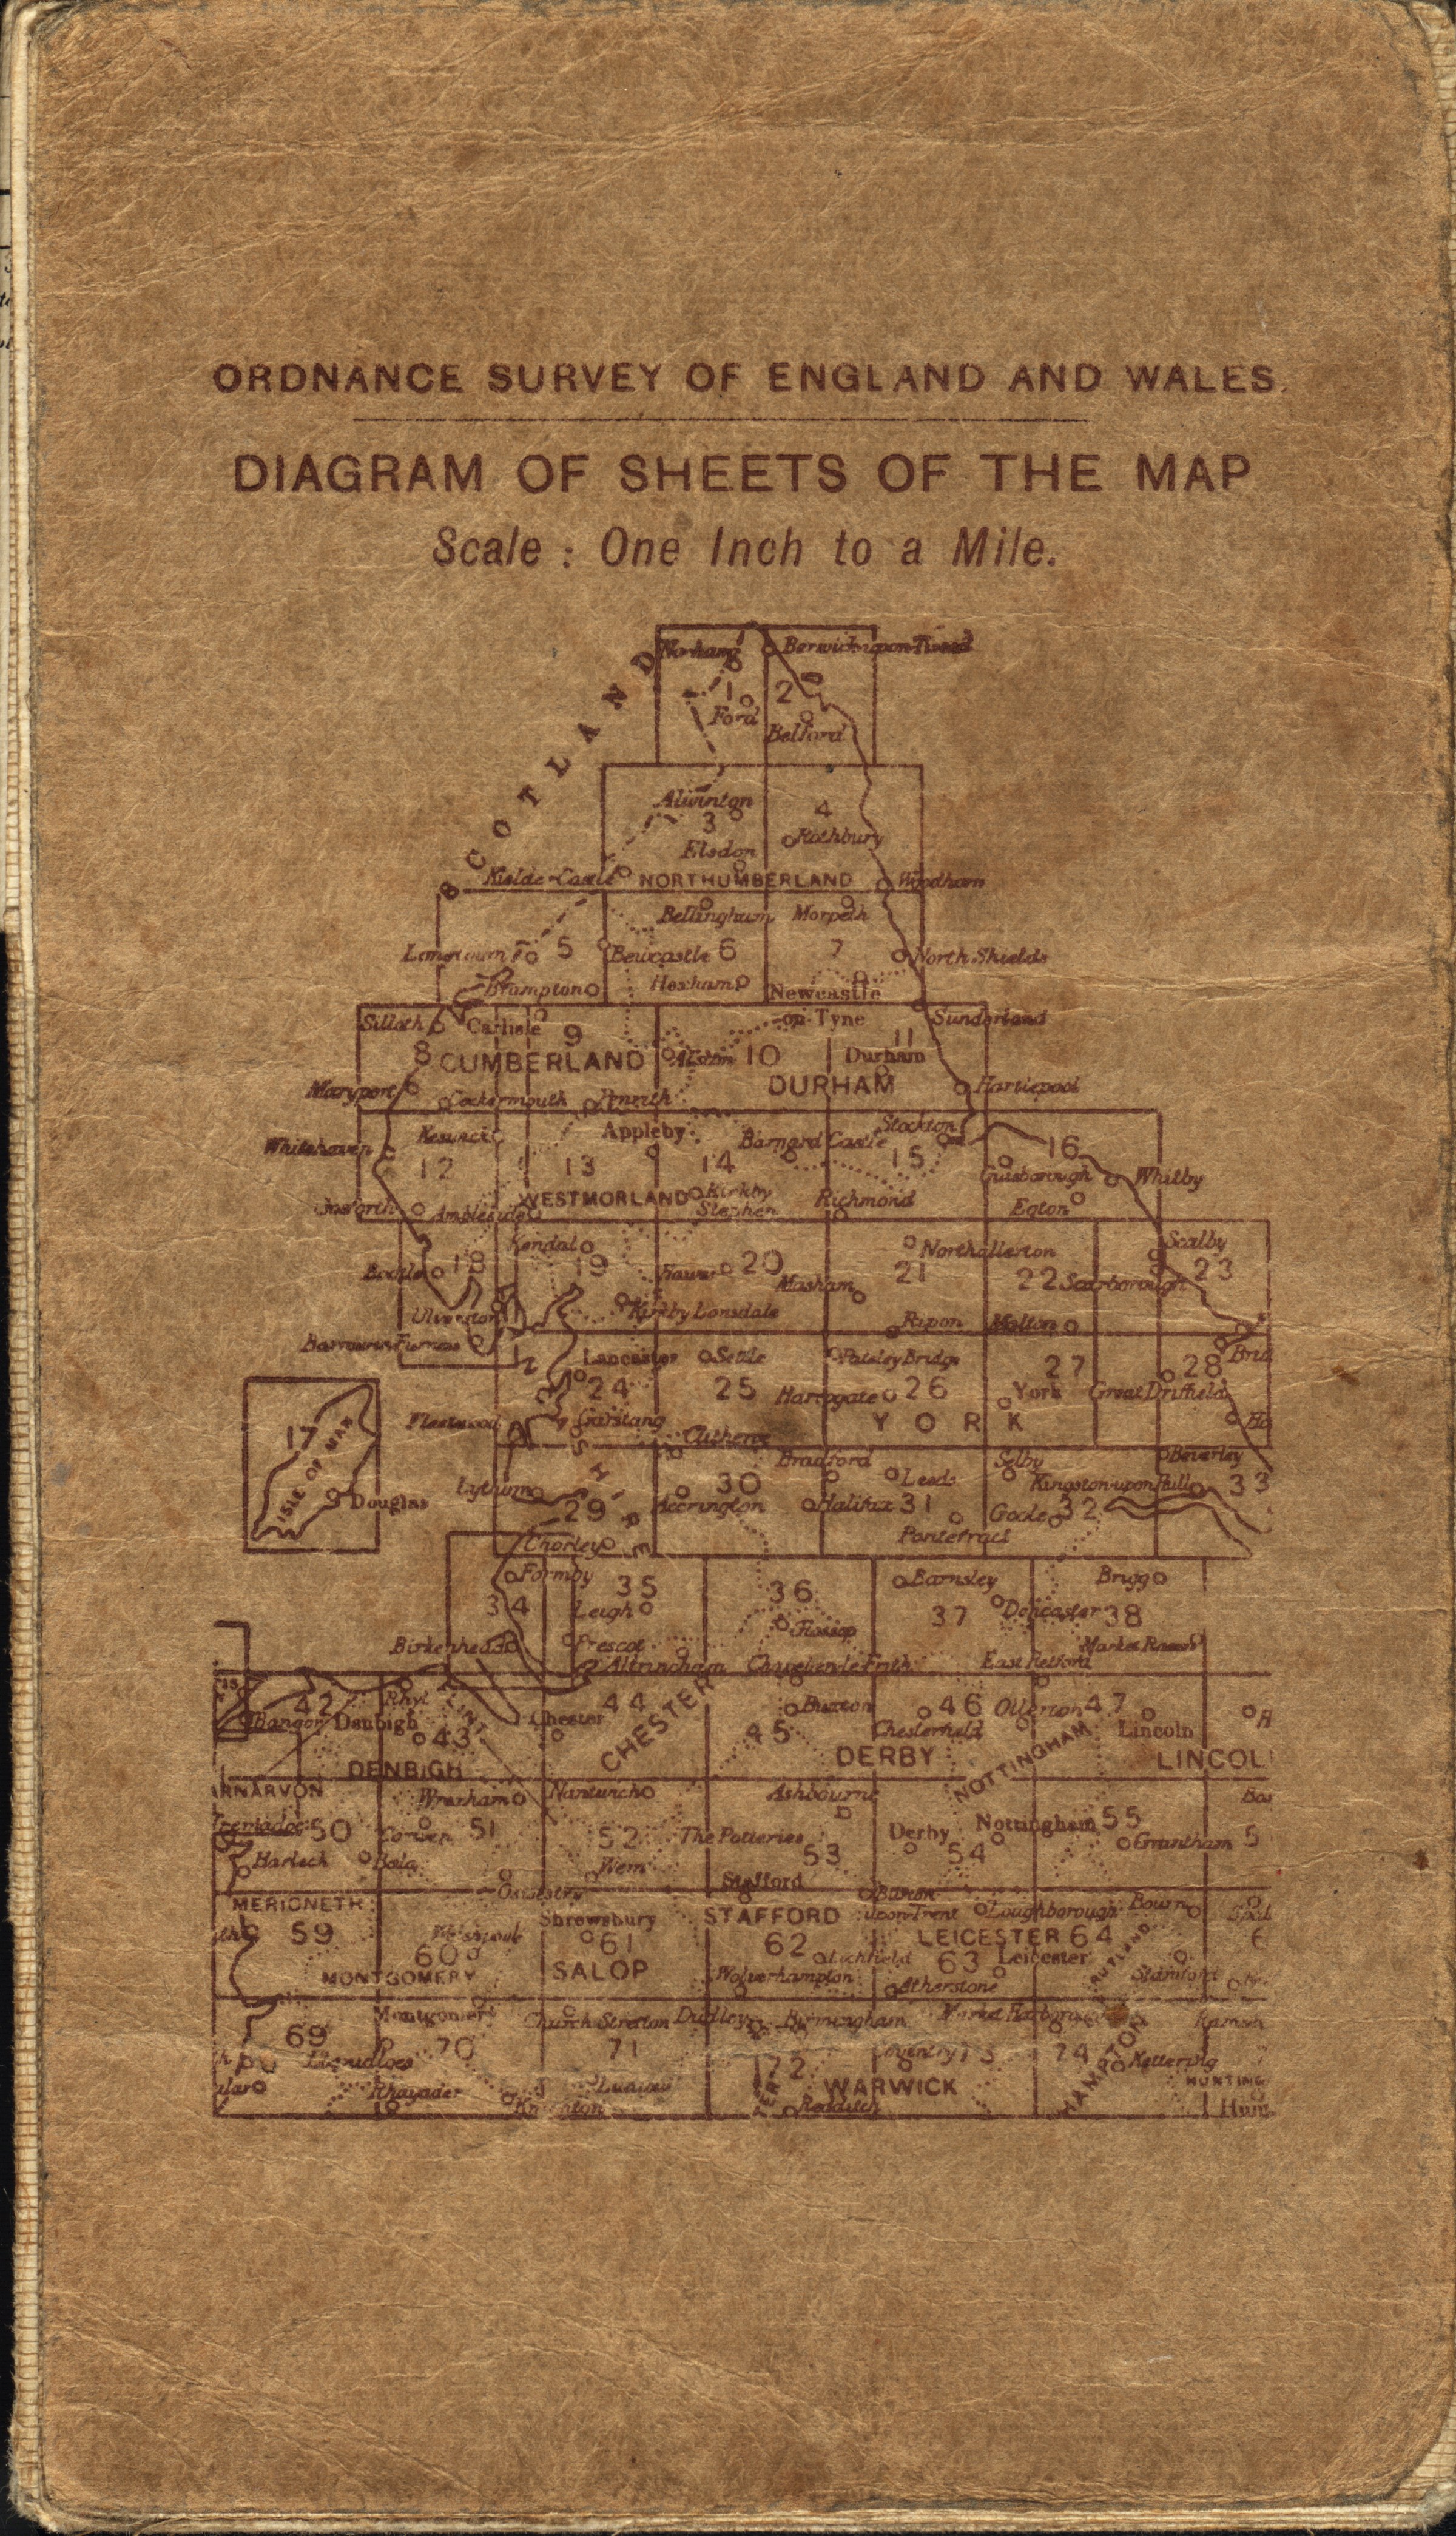 ORDNANCE SURVEY OF ENGLAND AND WALES.
DIAGRAM OF SHEETS OF THE MAP
Scale : One Inch to a Mile.
SCOTLAND
Norham Berwick-upon-Tweed
1 2
Ford
Belford
Alwinton
3 4
Elsdon Rothbury
Kielder Castle NORTHUMBERLAND Woodhorn
Bellingham Morpeth
Longtown 5 Bewcastle 6 7 North Shields
Brampton Hexham Newcastle
on Tyne
Silloth Carlisle 9 Sunderland
8 CUMBERLAND Alston 10 11 Durham
DURHAM
Maryport Cockermouth Penrith Hartlepool
Whitehaven Keswick Appleby Barnard Castle Stockton 16
12 13 14 15 Guisborough Whitby
Gosforth Ambleside WESTMORLAND Kirkby
Stephen Richmond Egton
Kendal Northallerton Scalby
Bootle 18 19 Hawes 20 Masham 21 22 Scarborough 23
Ulverston Kirkby Lonsdale
Barrow in Furness Ripon Malton
Lancaster Settle Pateley Bridge 27 28 Brid
24 25 Harrogate 26 York Great Driffield
17 ISLE OF MAN Douglas
Fleetwood Garstang Clitheroe YORK Ho
Lytham 30 Bradford Leeds Selby Beverley
29 Accrington Halifax 31 Goole 32 Kingston-upon-Hull 33
Chorley Pontefract
Formby 35 36 Barnsley Brigg
34 Leigh Glossop 37 Doncaster 38
Birkenhead Prescot Market Rasen
Altrincham Chapel-en-le-Frith East Retford
42 Rhyl 44 Buxton 46 Ollerton 47
Bangor Denbigh 43 FLINT Chester CHESTER 45 Chesterfield NOTTINGHAM Lincoln
DENBIGH DERBY LINCOL
RNARVON Wrexham Nantwich Ashbourne Bos
Tremadoc 50 Corwen 51 52 The Potteries Derby Nottingham 55
Harlech Bala Wem 53 54 Grantham 5
Oswestry Stafford Burton
MERIONETH Shrewsbury STAFFORD upon-Trent Loughborough Bourn
59 Welshpool 61 62 Lichfield LEICESTER 64 6
60 63 Leicester RUTLAND
MONTGOMERY SALOP Wolverhampton Atherstone Stamford
Montgomery Church Stretton Dudley Birmingham Market Harborough Ramse
69 Llanidloes 70 71 72 Coventry 73 74 Kettering
Rhayader Ludlow WARWICK HAMPTON HUNTING
Knighton Redditch Hun